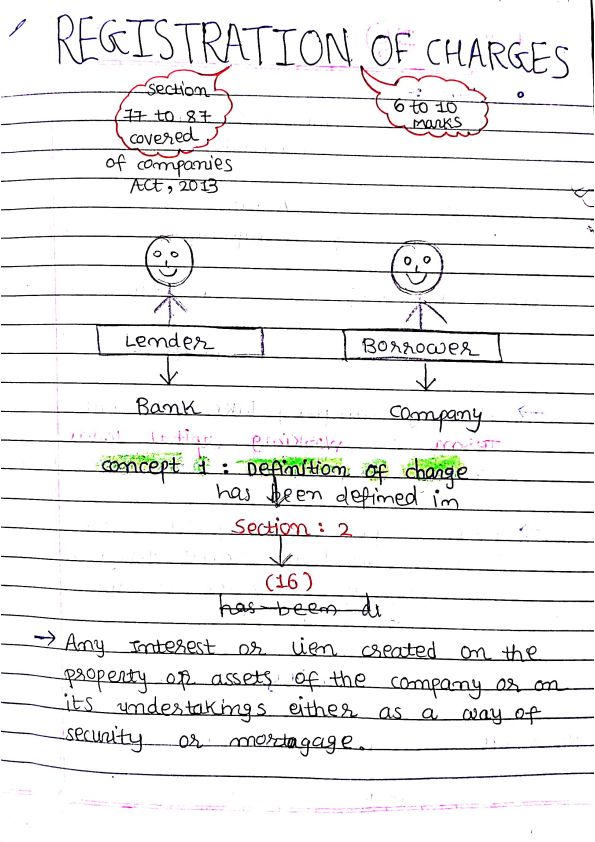 REGISTRATION OF CHARGES
Section
77 to 87
covered
of companies
Act, 2013
6 to 10
marks
Lender
Borrower
Bank
Company
concept 1 : Definition of charge
has been defined in
Section : 2
(16)
has been di
→ Any Interest or lien created on the
property or assets of the company or on
its undertakings either as a way of
security or mortagage.